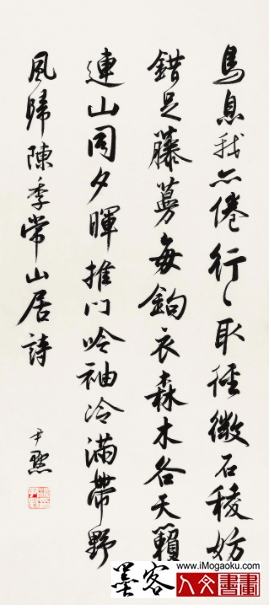 鳥息我亦倦行〻取徑微石稜妨
錯足藤蔓每鉤衣森木各天籟
連山同夕暉推門吟袖冷滿帶野
風歸陳季常山居詩
尹默
www.iMogaoku.com
墨客
人文書畫